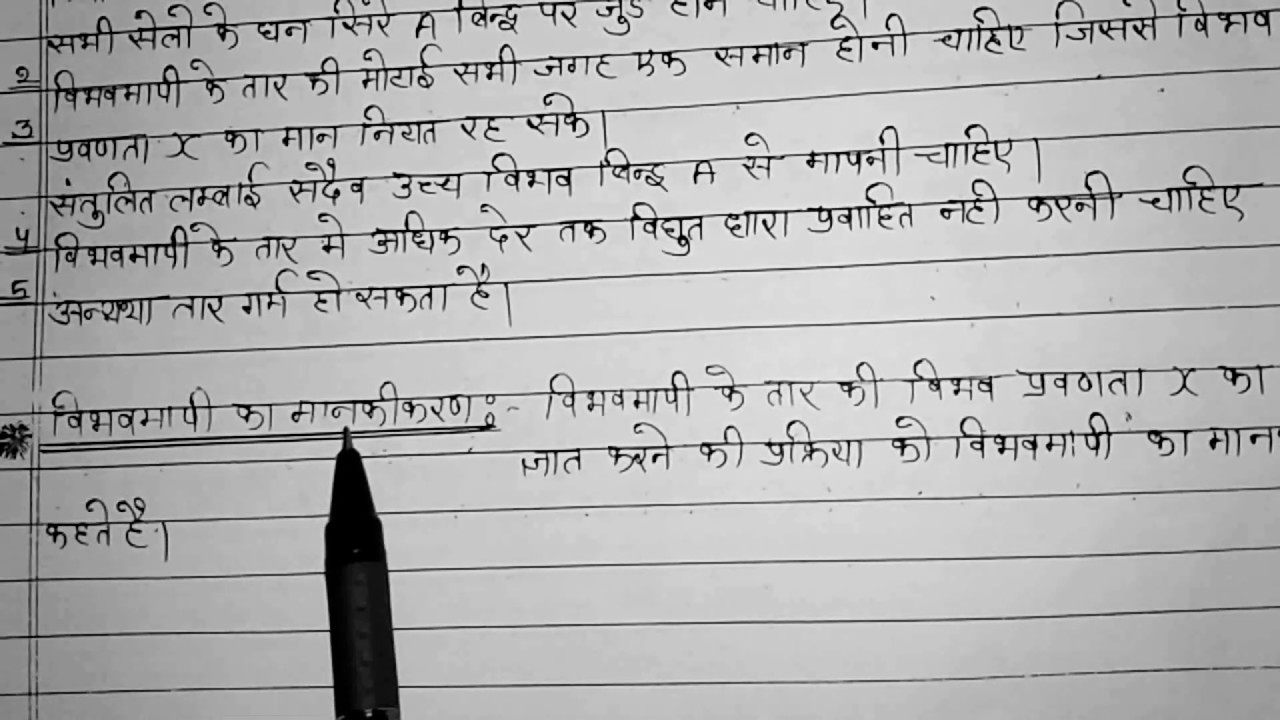 सभी सेलो के धन सिरे A बिन्दु पर जुडे होने चाहिए।
2 विभवमापी के तार की मोटाई सभी जगह एक समान होनी चाहिए जिससे विभव
3 प्रवणता x का मान नियत रह सके।
संतुलित लम्बाई सदैव उच्च विभव बिन्दु A से मापनी चाहिए।
4 विभवमापी के तार मे अधिक देर तक विद्युत धारा प्रवाहित नही करनी चाहिए
5 अन्यथा तार गर्म हो सकता है।
विभवमापी का मानकीकरण :- विभवमापी के तार की विभव प्रवणता x का
ज्ञात करने की प्रक्रिया को विभवमापी का मान
कहते है।